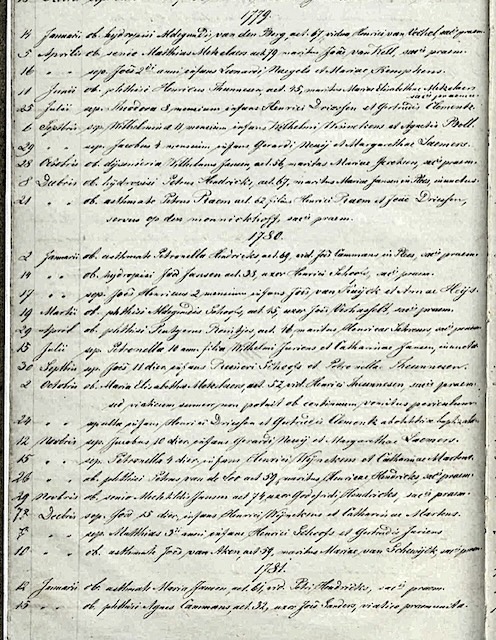 1779.
14 Januarii ob. hydropisi Aldegundis van den Berg aet. 67, vidua Henrici van sacr. praem.
5 Aprilis ob. senio Matthias Mekelaers aet. 79 maritus Joã van Kell, sacr. praem.
16 " " sep. Joã 2di anni infans Leonardi Naegels et Mariae Kempkens.
11 Junii ob. phthisi Henricus Theunissen aet. 45, maritus Mariae Elisabethae Mekelaers sacr. praem.
25 Julii sep. Theodora 3 mensium infans Henrici Driessen et Gertrudis Clemontz.
6 Septbris sep. Wilhelmina 11 mensium infans Wilhelmi et Agnetis Boll.
29 " " sep. Jacobus 4 mensium infans Gerardi Neuij et Margarethae Laemers.
28 Octobris ob. dijsenteria Wilhelmus Jansen, aet. 56, maritus Mariae sacr. praem.
8 Decbris ob. hydropisi Petrus Hendricks, aet. 67, maritus Mariae Jansen in Rees,
21 " " ob. asthmate Petrus Praem aet. 62 filius Henrici Praem et Joã Driessen,
servus op den monnickhoff, sacr. praem.
1780.
2 Januarii ob. asthmate Petronella Hendricks aet. 69, vid. Joã Cammans in Rees, sacr. praem.
14 " " ob. hydropisi Joã Jansen aet. 38, uxor Henrici sacr. praem.
17 " " sep. Joã Henricus 2 mensium infans Joã van et Annae Heijs.
19 Martii ob. phthisi Aldegundis Schoofs, aet. 45, uxor Joã sacr. praem.
29 April ob. phthisi aet. 76, maritus Henricae sacr. praem.
15 Julii sep. Petronella 10 ann. filia Wilhelmi Juriens et Catharinae Jansen,
30 Septbris sep. Joã 11 dier. infans Schoofs et Petronella Theunissen.
2 Octobris ob. Maria Elisabetha Mekelaers, aet. 52, vid. Henrici Theunissen sacr. praem.
sic viaticum, sumere non potuit ob continuum vomitus periculum
24 " " sepulta infans Henrici Driessen et Gertrudis Clemontz
12 Novbris sep. Jacobus 10 dier. infans Gerardi Neuij et Margarethae Laemers.
15 " " sep. Petronella 4 dier. infans Henrici Wijnekens et Catharinae Martens.
26 " " ob. phthisi Petrus van de Loo aet. 59, maritus Henricae Hendricks, sacr. praem.
29 Novbris ob. senio Mechtildis Jansen aet. 74, uxor Godefridi Hendricks, sacr. praem.
Decbris sep. Joã 15 dier. infans Henrici Wijnekens et Catharinae Martens.
7 " " sep. Matthias 3ii anni infans Henrici Schoofs et Gertrudis Juriens
10 " " ob. asthmate Joã van Aken, aet. 59, maritus Mariae van sacr. praem.
1781.
12 Januarii ob. asthmate Maria Jansen, aet. 61, vid. Petri Hendricks, sacr. praem.
15 " " ob. phthisi Agnes Cammans, aet. 32, uxor Joã Sanders, viatico praemunita.